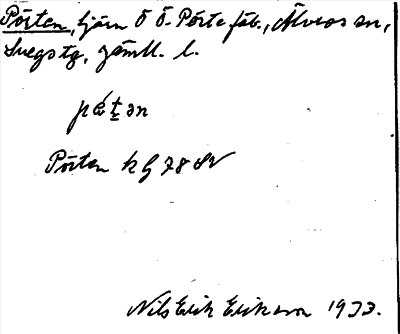 Pörten, tjärn Ö Ö. Pörte fäb., Älvros sn,
Svegs tg, Jämtl. l.
pǿt̠ən
Pörten kG 78 SV
Nils Erik Eriksson 1933.